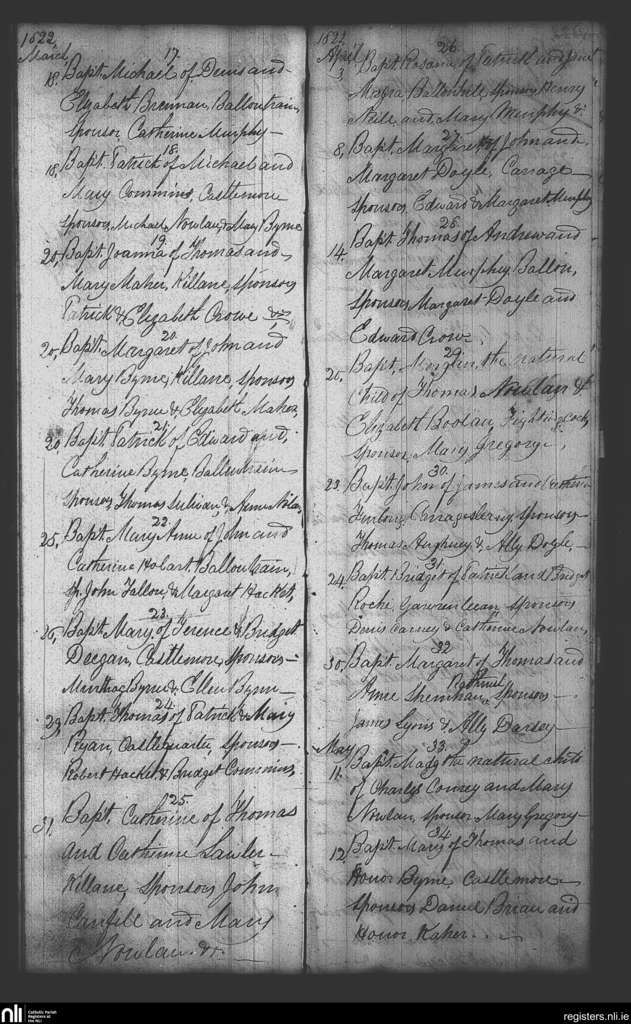 1822,
March,
17.
18. Bapt. Michael of Denis and
Elizabeth Brennan, Balloutrain,
Sponsor, Catherine Murphy —
18.
18, Bapt. Patrick of Michael and
Mary Commins, Castlemore
Sponsors, Michael Nowlan & Mary Byrne
19.
20, Bapt. Joanna of Thomas and
Mary Maher, Killane, Sponsors
Patrick & Elizabeth Crowe &c
20.
20, Bapt. Margaret of John and
Mary Byrne, Killane, Sponsors
Thomas Byrne & Elizabeth Maher,
21.
20, Bapt. Patrick of Edward and,
Catherine Byrne, Balloutrain
Sponsors, Thomas Sulivan, & Anne Nolan,
22.
25, Bapt. Mary Anne of John and
Catherine Hobart, Balloutrain,
Sp. John Fallon, & Margaret Hacket,
23.
26, Bapt. Mary of Terence & Bridget
Deegan, Castlemore, Sponsors —
Byrne & Ellen Byrne —
24.
29, Bapt. Thomas of Patrick & Mary
Ryan, Castlequarter, Sponsors —
Robert Hacket & Bridget Commins,
25.
31, Bapt. Catherine of Thomas
and Catherine Lawler —
Killane, Sponsors, John
and Mary
Nowlan. &c. —
1822
April
26.
3, Bapt. Rosanna of Patrick and
Sponsors Henry
Neill, and, Mary Murphy &c
27.
8, Bapt. Margaret of John and
Margaret Doyle, Carrage —
Sponsors, Edward & Margaret Murphy
28.
14. Bapt. Thomas of Andrew and
Margaret Murphy Ballon,
Sponsors, Margaret Doyle and
Edward Crow.
29.
Bapt. the natural
Child of Thomas Nowlan &
Elizabeth Boolan, Fighting Cocks,
Sponsor, Mary Gregory,
30.
23. Bapt. John of James and Catherine
Furlong, Sponsors —
Thomas & Ally Doyle, —
31.
24, Bapt. Bridget of Patrick and Bridget
Roche, Sponsors
Denis Carney & Catherine Nowlan,
32
30, Bapt. Margaret of Thomas and
Anne Rathrush, Sponsors —
James Lyons & Ally Darsey —
May
33.
11. Bapt. Madge the natural child
of Charles Conrey and Mary
Nowlan, Sponsor Mary Gregory —
34.
12, Bapt. Mary of Thomas and
Honor Byrne, Castlemore —
Sponsors Daniel Brian and
Honor Kaher. . —
nli
Catholic Parish
Registers at
the NLI
registers.nli.ie